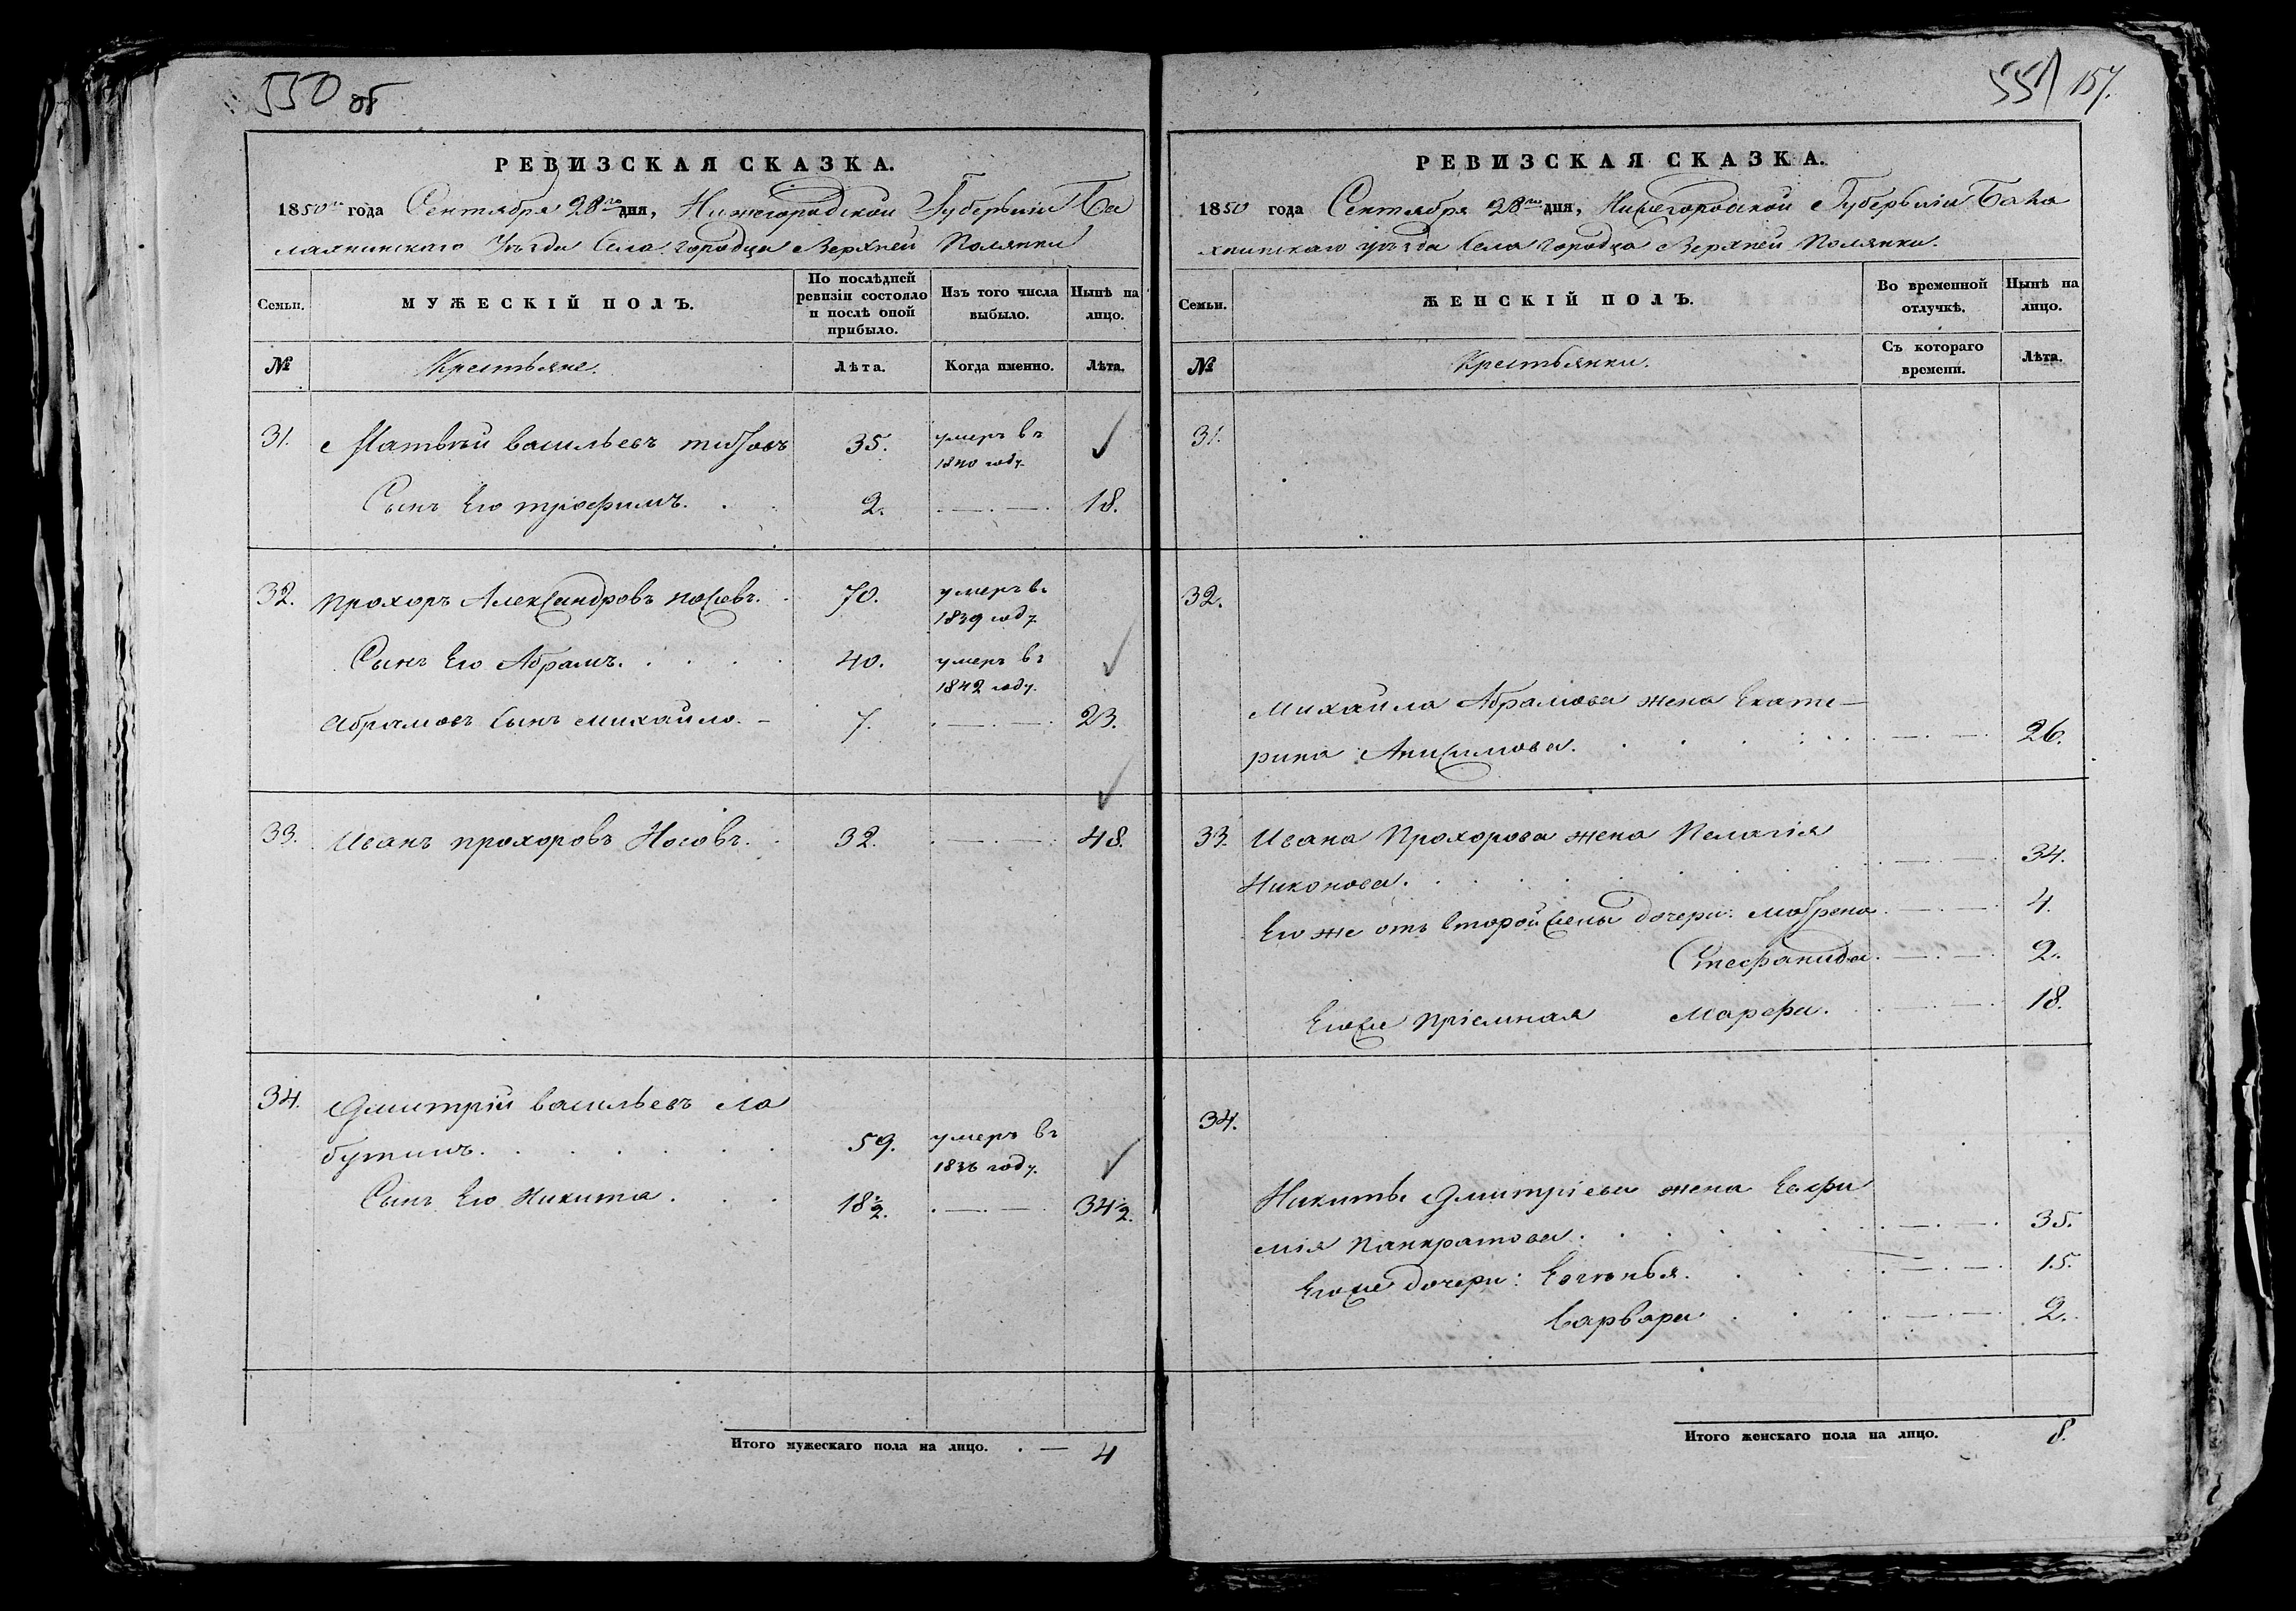 550 об
РЕВИЗСКАЯ СКАЗКА.
1850го года Сентября 28го дня, Нижегородской Губерніи Ба
лахнинскаго Уѣзда Села городца Верхней Полянки
Семьи.
МУЖЕСКІЙ ПОЛЪ.
По послѣдней ревизіи состояло и послѣ оной прибыло.
Изъ того числа выбыло.
Нынѣ на лицо.
№
Крестьяне.
Лѣта.
Когда именно.
Лѣта.
31. Матвѣй васильевъ 35. умеръ въ 1840 году.
Сынъ Его трофимъ. 2. 18.
32. прохоръ Александровъ носовъ. 70. умеръ въ 1839 году
Сынъ Его Абрамъ. 40. умеръ въ 1842 году.
Абрамовъ сынъ михайло. 7. 23.
33. Иванъ прохоровъ Носовъ. 32. 48.
34. Дмитрій васильевъ ла
бутинъ. 59. умеръ въ 1836 году.
Сынъ Его Никита. 18½. 34½.
Итого мужескаго пола на лицо. 4
551 157.
РЕВИЗСКАЯ СКАЗКА.
1850 года Сентября 28го дня, Нижегородской Губерніи Бала
хнинскаго уѣзда Села городца Верхней Полянки.
Семьи.
ЖЕНСКІЙ ПОЛЪ.
Во временной отлучкѣ.
Нынѣ на лицо.
№
Крестьянки.
Съ котораго времени.
Лѣта.
31.
32.
Михайла Абрамова жена Екате-
рина Анисимова. 26.
33. Ивана Прохорова жена Пелагія
Никонова. 34.
Его же отъ второй жены дочери: маврена 4.
Стефанида. 2.
Егоже пріемная Марфа. 18.
34.
Никиты Дмитріева жена Евфи
мія панкратова. 35.
Егоже дочери: Евгенья. 15.
Варвара 2.
Итого женскаго пола на лицо. 8.